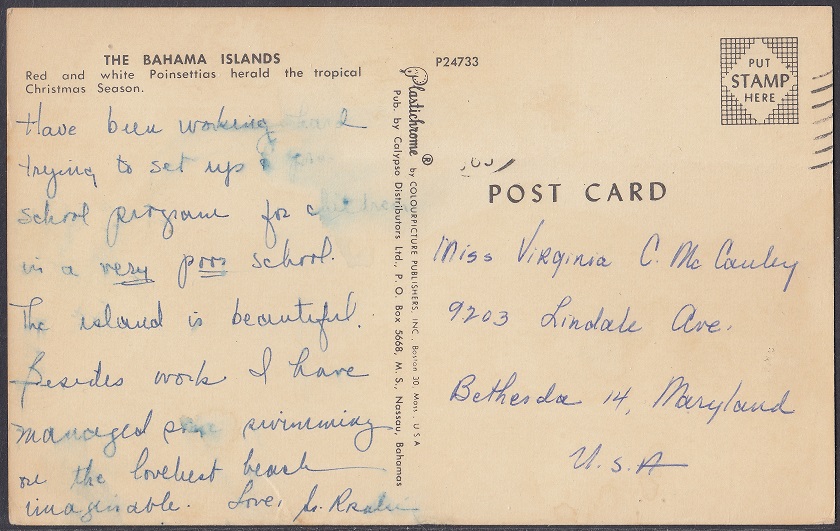 THE BAHAMA ISLANDS
Red and white Poinsettias herald the tropical
Christmas Season.
Have been working hard
trying to set up a
school program for children
in a very poor school.
The island is beautiful.
Besides work I have
managed some swimming
on the loveliest beach
imaginable. Love,
Plastichrome ® by COLOURPICTURE PUBLISHERS, INC., Boston 30, Mass., U S A
Pub. by Calypso Distributors Ltd., P. O. Box 5668, M. S., Nassau, Bahamas
P24733
PUT
STAMP
HERE
POST CARD
Miss Virginia C. McCauley
9203 Lindale Ave.
Bethesda 14, Maryland
U.S.A